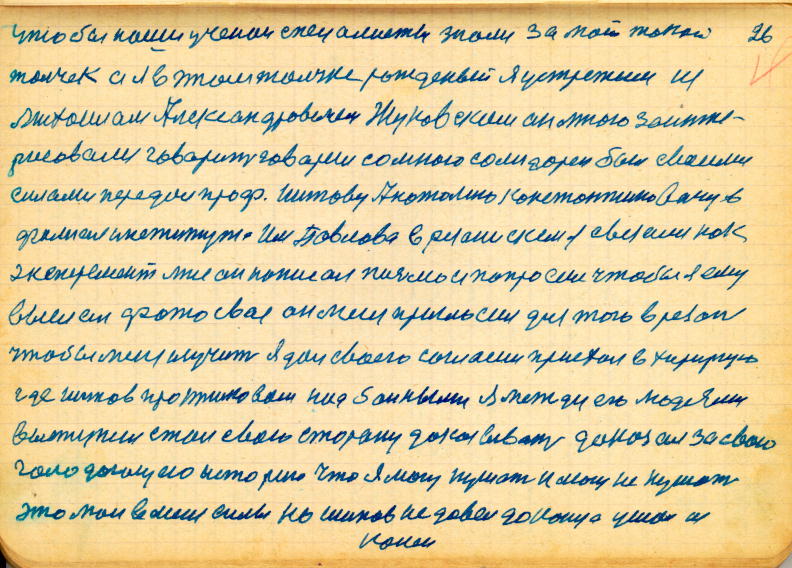 чтобы наши ученои специалисты знали за мой такой 26
толчек а я в этом толчке рожденый я устретил и
Александровичем Жуковским он много заинте-
ресовали говарит товарищ со много солидорен был своими
силами передои проф. шитову Анатолию Константиновичу в
филиал институт. Им Павлова в
эксперемент мне он написал писмо и попросил чтобы я ему
выслал фото свае он меня пригласил для того в рязан
чтобы меня изучит я дал своего согласии приехал в хирургую
где шитов практиковал над больными я между его людями
выступил стал свою сторону доказывать доказал за свою
голодогную историю что я могу кушат и могу не кушат
это мои силы но шитов не довел до конца ушол и